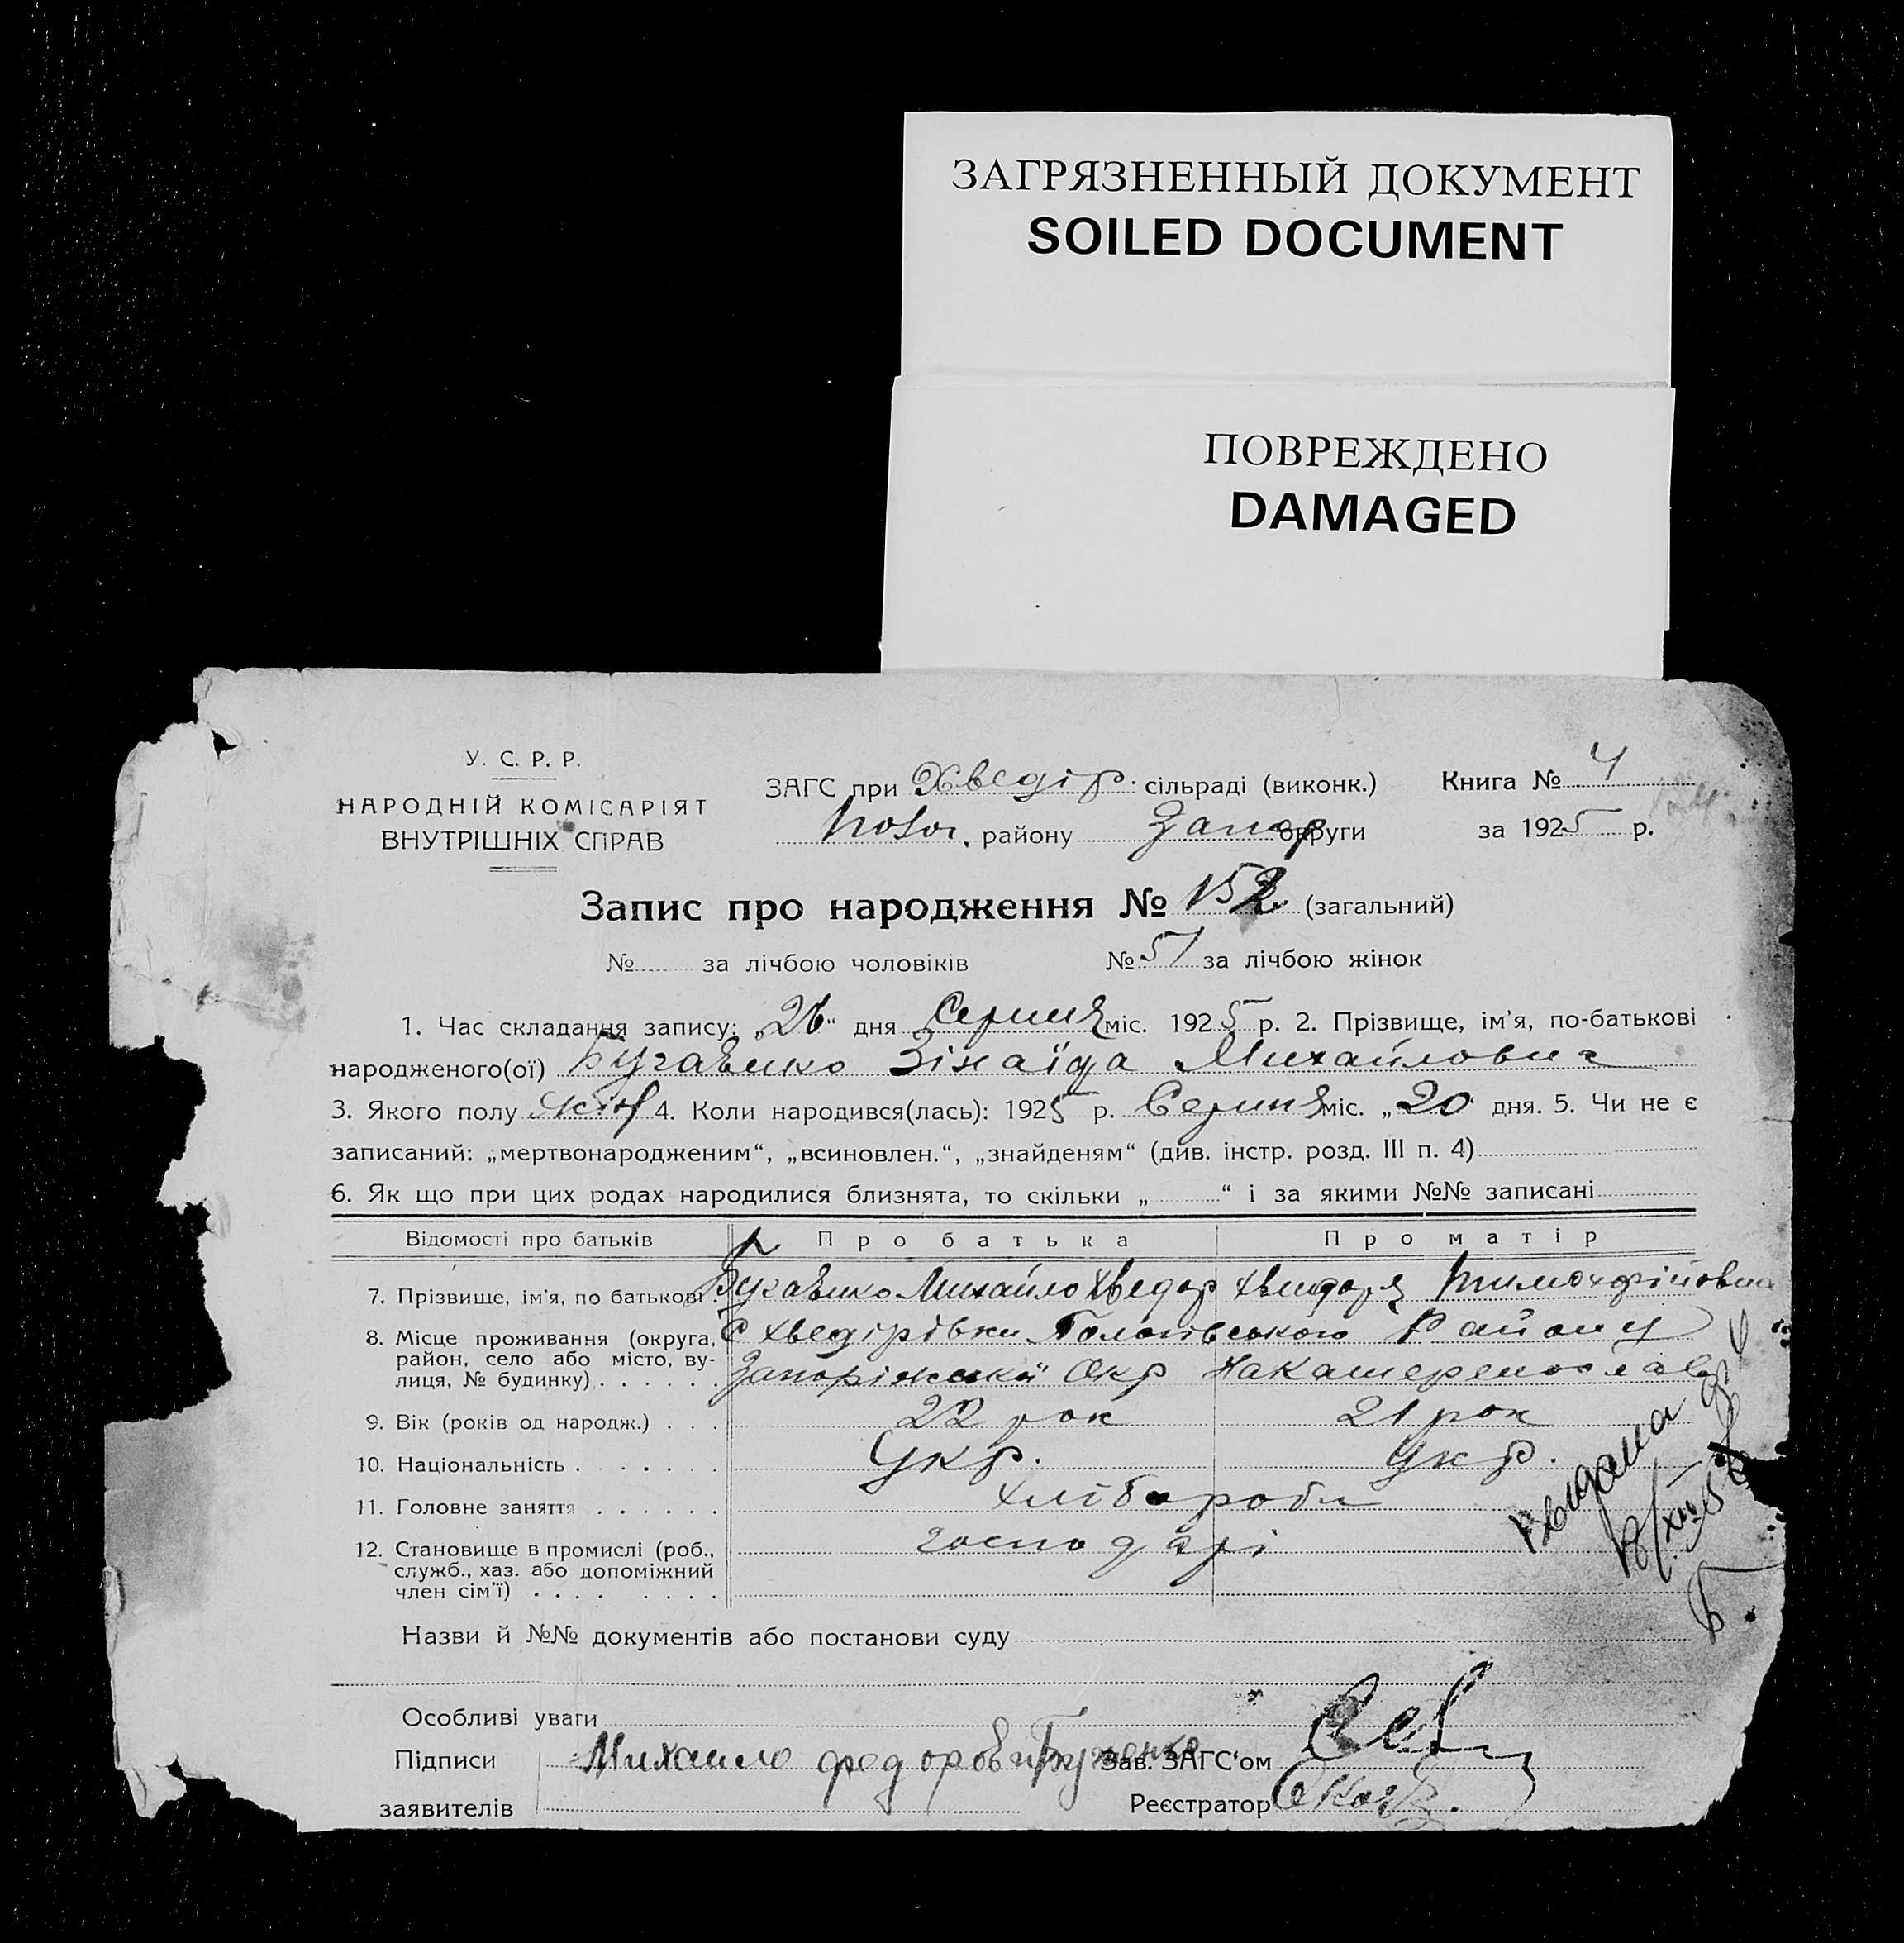 ЗАГРЯЗНЕННЫЙ ДОКУМЕНТ
SOILED DOCUMENT
ПОВРЕЖДЕНО
DAMAGED
У. С. Р. Р.
НАРОДНІЙ КОМІСАРІЯТ
ВНУТРІШНІХ СПРАВ
ЗАГС при Хведір. сільраді (виконк.)
району Запор округи
Книга № 4
за 1925 р.
Запис про народження № 152 (загальний)
№ за лічбою чоловіків № 57 за лічбою жінок
1. Час складання запису: „26“ дня Серпня міс. 1925 р. 2. Прізвище, ім'я, по-батькові
народженого(ої) Зінаїда Михайловна
3. Якого полу жін 4. Коли народився(лась): 1925 р. Серпня міс. „20 дня. 5. Чи не є
записаний: „мертвонародженим“, „всиновлен.“, „знайденям“ (див. інстр. розд. III п. 4)
6. Як що при цих родах народилися близнята, то скільки „ “ і за якими №№ записані
Відомості про батьків Про батька Про матір
7. Прізвище, ім'я, по батькові Михайло Хведор
8. Місце проживання (округа, С Хведірівки Району
район, село або місто, ву-
лиця, № будинку) Запоріжськоі Окр
9. Вік (років од народж.) 22 рок 21 рок
10. Національність Укр. Укр.
11. Головне заняття хлібороби
12. Становище в промислі (роб., господарі
служб., хаз. або допоміжний
член сім'ї)
Выдана
Назви й №№ документів або постанови суду
Особливі уваги
Підписи Михаило федорович Зав. ЗАГС'ом
заявителів Реєстратор